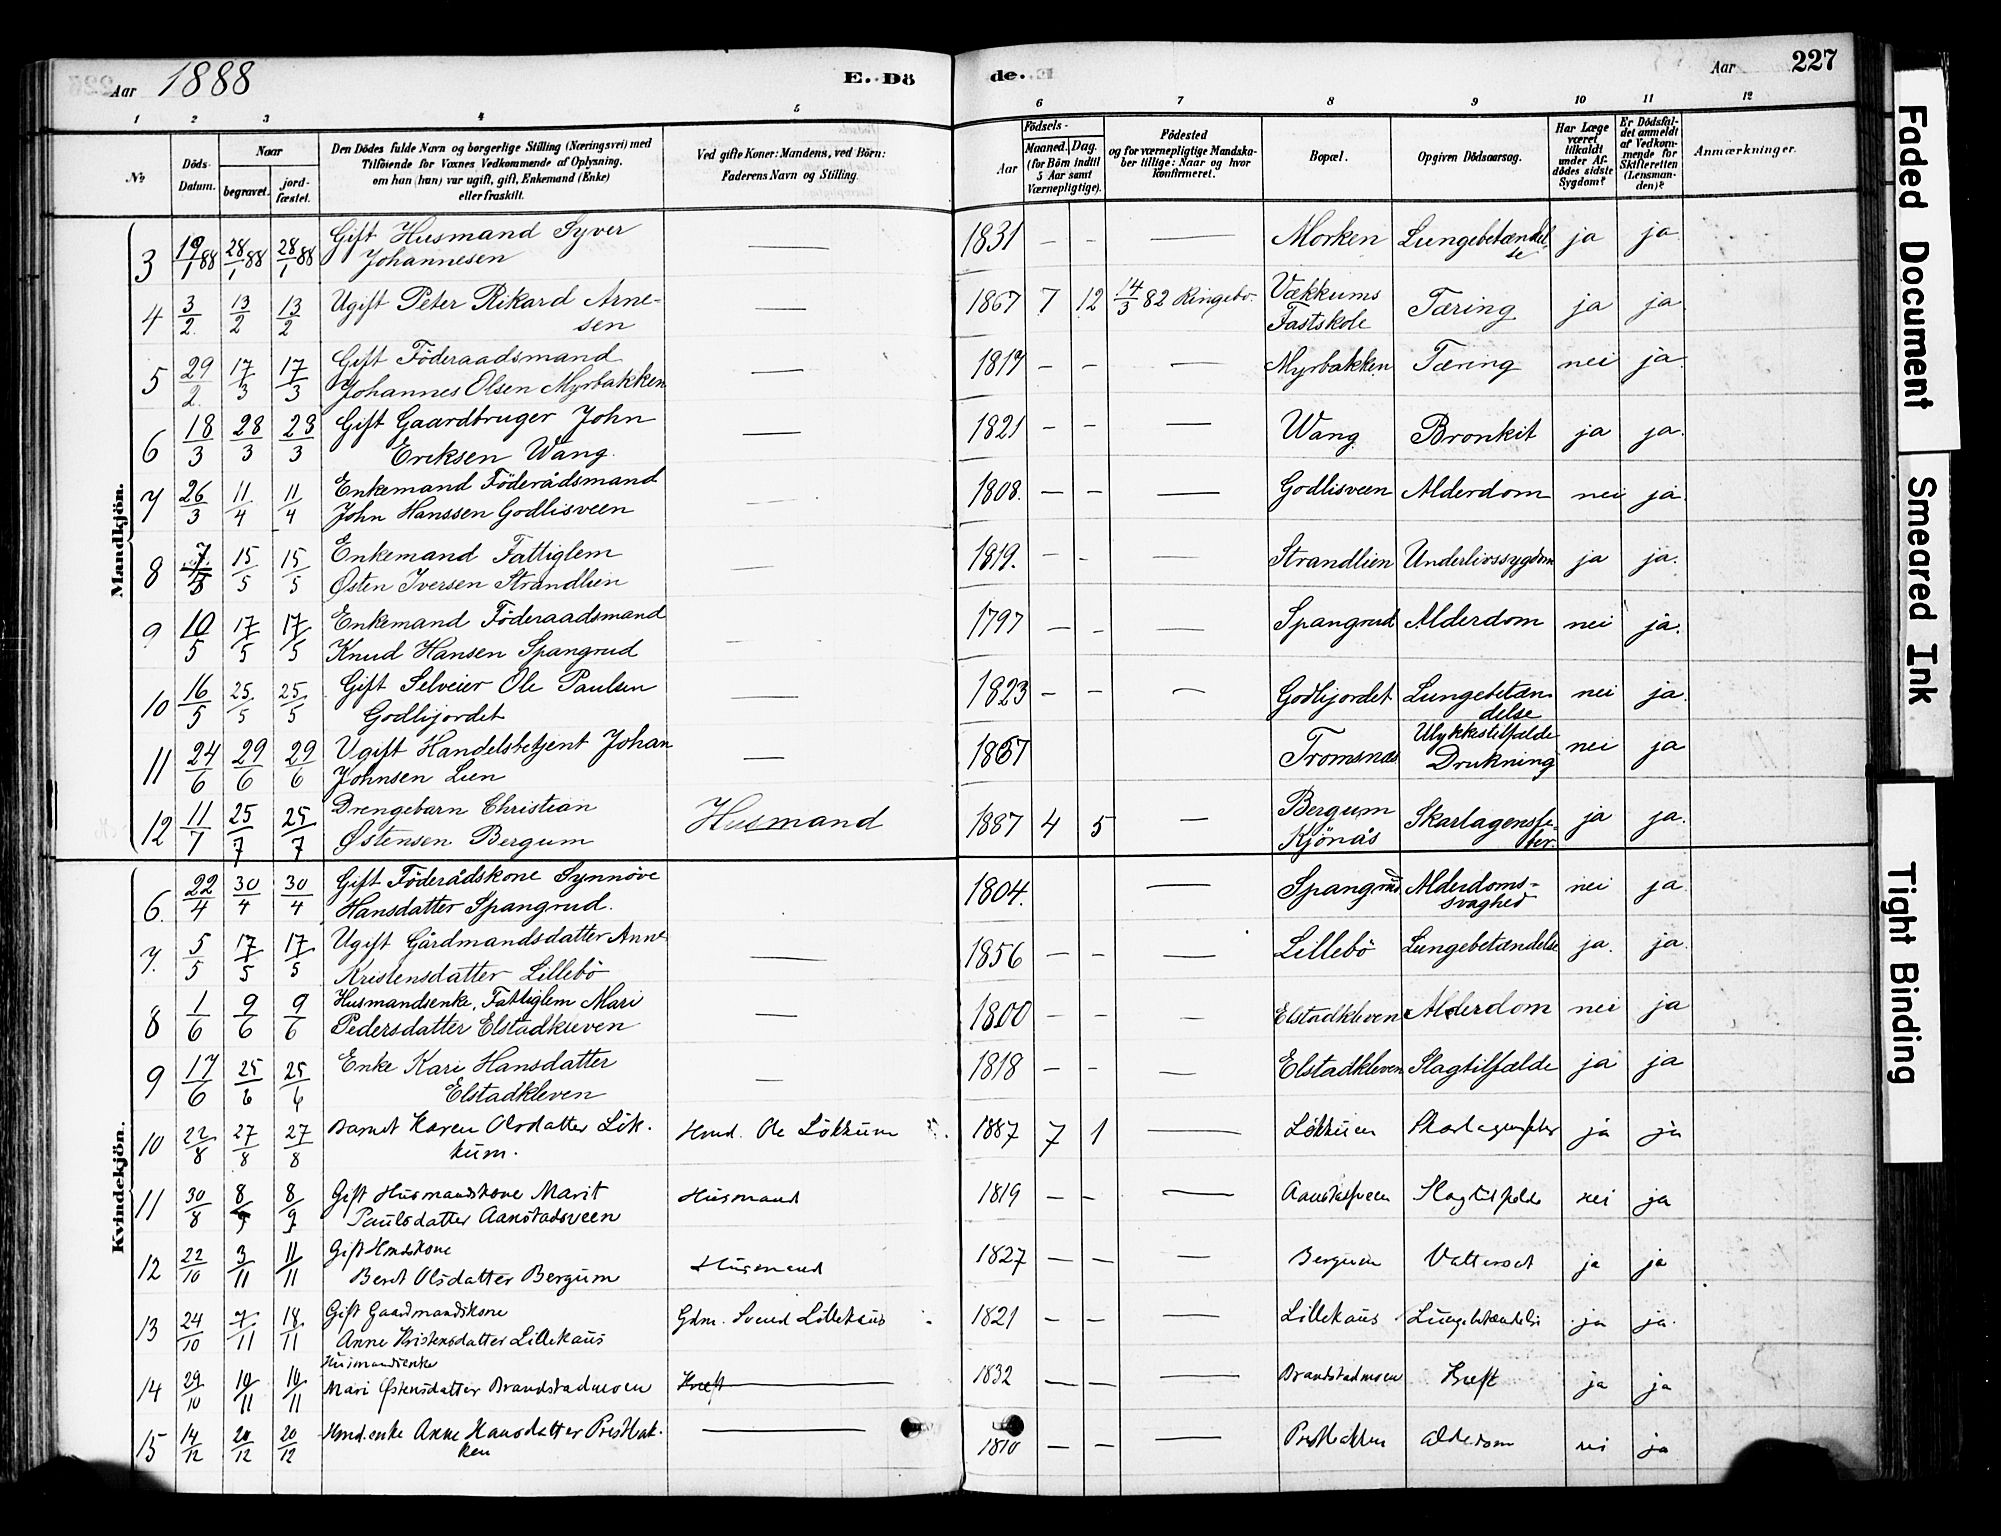 Aar 1888
E. Dö
de.
Aar 227
1 2 3 4 5 6 7 8 9 10 11 12
No
Döds-Datum.
Naar
begravet.
jord-fæstet.
Den Dödes fulde Navn og borgerlige Stilling (Næringsvei) med
Tilföiende for Voxnes Vedkommende af Oplysning,
om han (hun) var ugift, gift, Enkemand (Enke)
eller fraskilt.
Ved gifte Koner: Mandens, ved Börn:
Faderens Navn og Stilling.
Födsels-
Aar
Maaned. Dag.
(for Börn indtil
5 Aar samt
Værnepligtige).
Födested
og for værnepligtige Mandska-
ber tillige: Naar og hvor
Konfirmeret.
Bopæl.
Opgiven Dödsaarsag.
Har Læge
været
tilkaldt
under Af-
dödes sidste
Sygdom?
Er Dödsfal-
det anmeldt
af Vedkom-
mende for
Skifteretten
(Lensman-
den)?
Anmærkninger.
Mandkjön.
3 19/1 88 28/1 88 28/1 88 Gift Husmand Syver
Johannesen — 1831 – – — Morken Lungebetændel-
se ja ja
4 3/2 13/2 13/2 Ugift Peter Rikard Arne-
sen — 1867 7 12 14/3 82 Ringebo Vækkums
Fastskole Tæring ja ja
5 29/2 17/3 17/3 Gift Föderaadsmand
Johannes Olsen Myrbakken — 1819 – – — Myrbakken Tæring nei ja
6 18/3 28/3 28/3 Gift Gaardbruger John
Eriksen Wang. — 1821 – – — Wang Bronkit ja ja.
7 26/3 11/4 11/4 Enkemand Föderådsmand
John Hanssen Godlisveen 1808. – – — Godlisveen Alderdom nei ja
8 15/5 15/5 Enkemand Fattiglem
Østen Iversen Strandlien — 1819. – – — Strandlien Underlivssygdom ja ja.
9 10/5 17/5 17/5 Enkemand Föderaadsmand
Knud Hansen Spangrud — 1797 – – — Spangrud Alderdom nei ja.
10 16/5 25/5 25/5 Gift Selveier Ole Paulsen
Godlijordet — 1823 – – — Godlijordet Lungebetæn-
delse nei ja
11 24/6 29/6 29/6 Ugift Handelsbetjent Johan
Johnsen Lien — 1867 Tromsnæs Ulykkestilfælde
Drukning nei ja
12 11/7 25/7 25/7 Drengebarn Christian
Østensen Bergum Husmand 1887 4 5 — Bergum
Kjönås Skarlagensfe-
ber. ja ja.
Kvindekjön.
6. 22/4 30/4 30/4 Gift Föderådskone Synnöve
Hansdatter Spangrud. 1804. — Spangrud Alderdoms-
svaghed nei ja
7. 5/5 17/5 17/5 Ugift Gårdmandsdatter Anne
Kristensdatter Lillebö — 1856 – – — Lillebö Lungebetændelse ja. ja.
8 1/6 9/6 9/6 Husmandsenke, Fattiglem Mari
Pedersdatter Elstadkleven — 1800 – – — Elstadkleven Alderdom nei ja
9 17/6 25/6 25/6 Enke Kari Hansdatter
Elstadkleven — 1818 – – — Elstadkleven Slagtilfælde ja ja
10 22/8 27/8 27/8 Barnet Karen Olsdatter Lök-
kum. Hmd. Ole Lökkum 1887 7 1 — Lökkum Skarlagensfeber ja ja
11 30/8 8/9 8/9 Gift Husmandskone Marit
Paulsdatter Aanstadsveen Husmand 1819 – – — Aanstadsveen Slagtilfelde nei ja
12 22/10 3/11 11/11 Gift Hmdskone
Beret Olsdatter Bergum Husmand 1827 – – — Bergum Vattersot ja ja
13 24/10 7/11 18/11 Gift Gaardmandskone
Anne Kristensdatter Lillekaus Gdm. Svend Lillekaus 1821 – – — Lillekaus Lungebetændelse ja ja.
14 29/10 10/11 10/11 Husmandsenke
Mari Østensdatter Brandstadmoen Kreft 1832 – – — Brandstadmoen Kreft ja ja
15 14/12 20/12 20/12 Hmd.enke Anne Hansdatter
ken — 1810 – – — Alderdom nei ja
Faded Document
Smeared Ink
Tight Binding